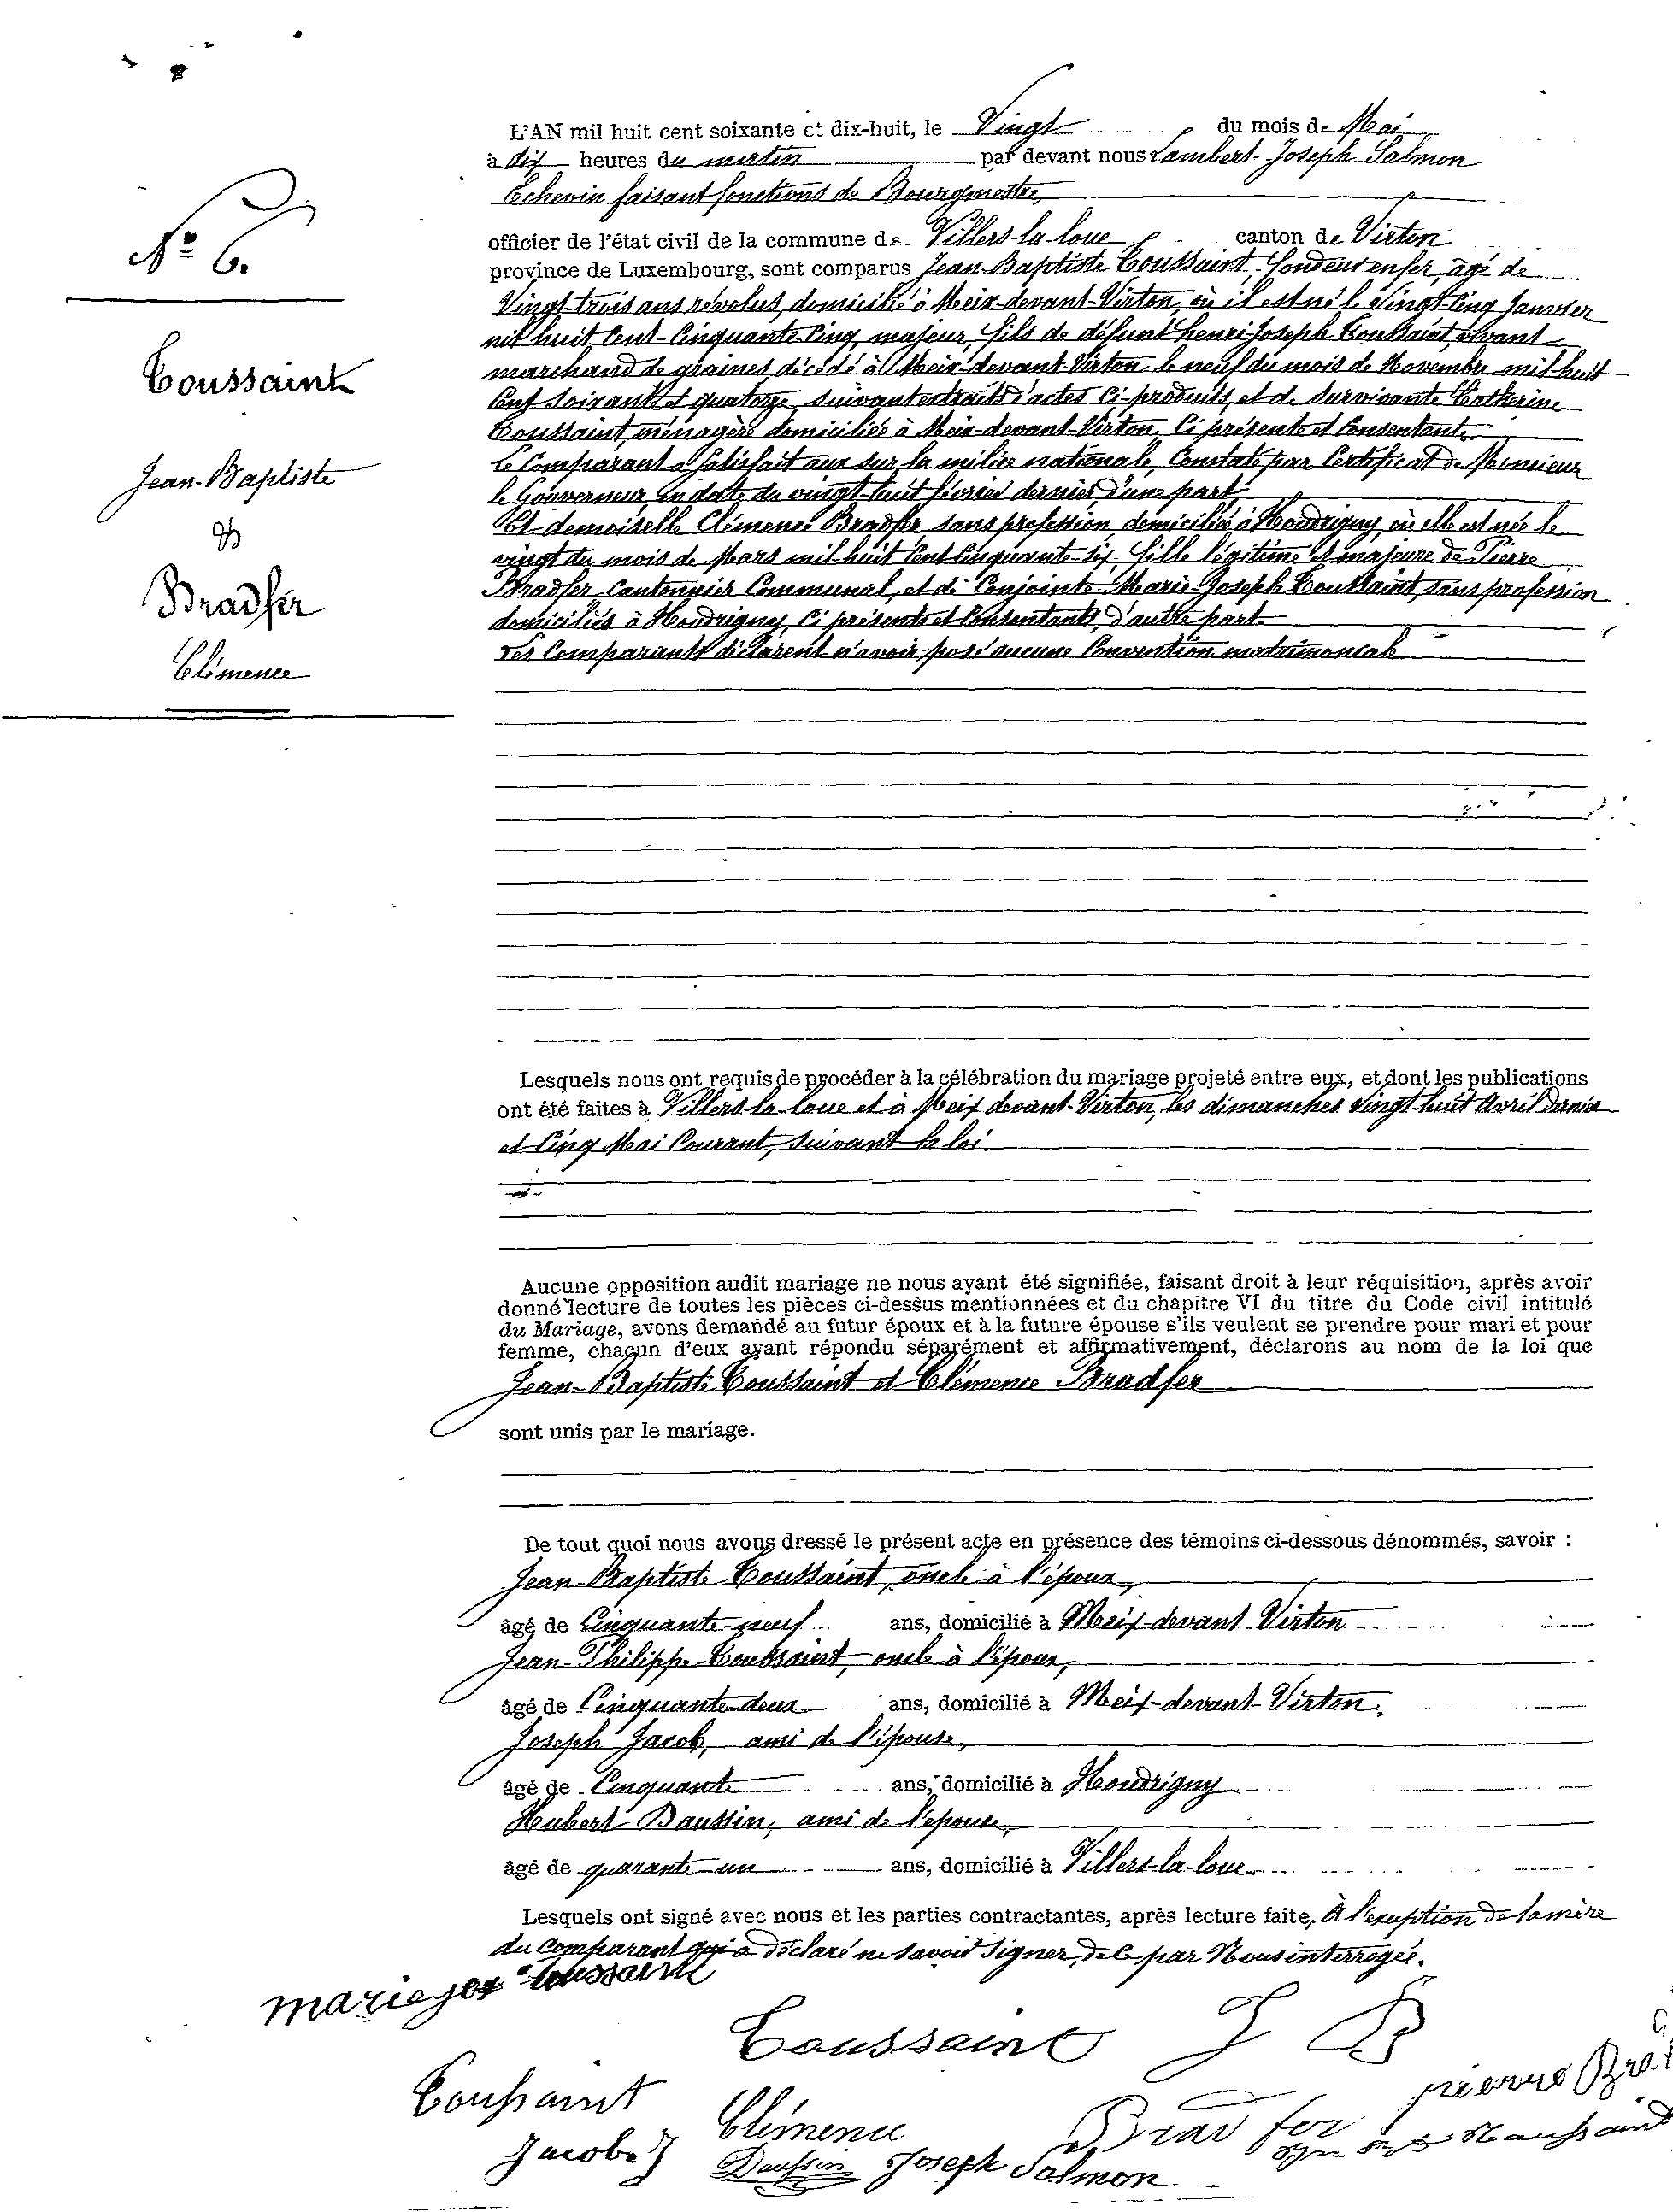 N° 6.
Toussaint
Jean-Baptiste
&
Bradfer
Clémence
L'AN mil huit cent soixante et dix-huit, le Vingt du mois de Mai
à dix heures du matin par devant nous Lambert-Joseph Salmon
Echevin faisant fonctions de Bourgmestre,
officier de l'état civil de la commune de Villers-la-loue canton de Virton
province de Luxembourg, sont comparus Jean-Baptiste Toussaint, fondeur en fer, âgé de
Vingt-trois ans révolus, domicilié à Meix-devant-Virton, où il est né le vingt-cinq Janvier
mil huit Cent-Cinquante-Cinq, majeur, fils de défunt henri-Joseph Toussaint, vivant
marchand de graines, décédé à Meix-devant-Virton le neuf du mois de Novembre mil-huit
Cent soixante et quatorze, suivant extraits d'actes Ci-produits, et de survivante Catherine
Toussaint, ménagère domiciliée à Meix-devant-Virton, Ci présente et Consentante.
Le Comparant a satisfait aux sur la milice nationale, Constaté par Certificat de Monsieur
le Gouverneur, en date du vingt-huit février dernier, d'une part,
Et demoiselle Clémence Bradfer, sans profession, domiciliée à Houdrigny, où elle est née le
vingt du mois de Mars mil-huit Cent Cinquante-six, fille légitime et majeure de Pierre
Bradfer, Cantonnier Communal, et de Conjointe Marie-Joseph Toussaint, sans profession
domiciliés à Houdrigny, Ci présents et Consentants, d'autre part.
Les Comparants déclarent n'avoir posé aucune Convention matrimoniale
Lesquels nous ont requis de procéder à la célébration du mariage projeté entre eux, et dont les publications
ont été faites à Villers-la-loue et à Meix devant-Virton, les dimanches vingt-huit Avril dernier
et Cinq Mai Courant, suivant la loi.
Aucune opposition audit mariage ne nous ayant été signifiée, faisant droit à leur réquisition, après avoir
donné lecture de toutes les pièces ci-dessus mentionnées et du chapitre VI du titre du Code civil intitulé
du Mariage, avons demandé au futur époux et à la future épouse s'ils veulent se prendre pour mari et pour
femme, chacun d'eux ayant répondu séparément et affirmativement, déclarons au nom de la loi que
Jean-Baptiste Toussaint et Clémence Bradfer
sont unis par le mariage.
De tout quoi nous avons dressé le présent acte en présence des témoins ci-dessous dénommés, savoir :
Jean-Baptiste Toussaint, oncle à l'époux,
âgé de Cinquante-neuf ans, domicilié à Meix-devant-Virton
Jean-Philippe Toussaint, oncle à l'époux,
âgé de Cinquante-deux ans, domicilié à Meix-devant-Virton.
Joseph Jacob, ami de l'épouse,
âgé de Cinquante ans, domicilié à Houdrigny
Hubert Daussin, ami de l'épouse,
âgé de quarante-un ans, domicilié à Villers-la-loue
Lesquels ont signé avec nous et les parties contractantes, après lecture faite, À l'exception de la mère
du comparant qui a déclaré ne savoir signer, de ce par Nous interrogée.
marie jos toussaint
Toussaint J B
Toussaint
Clémence Bradfer
pierre
Jacob. J
Daussin Joseph Salmon